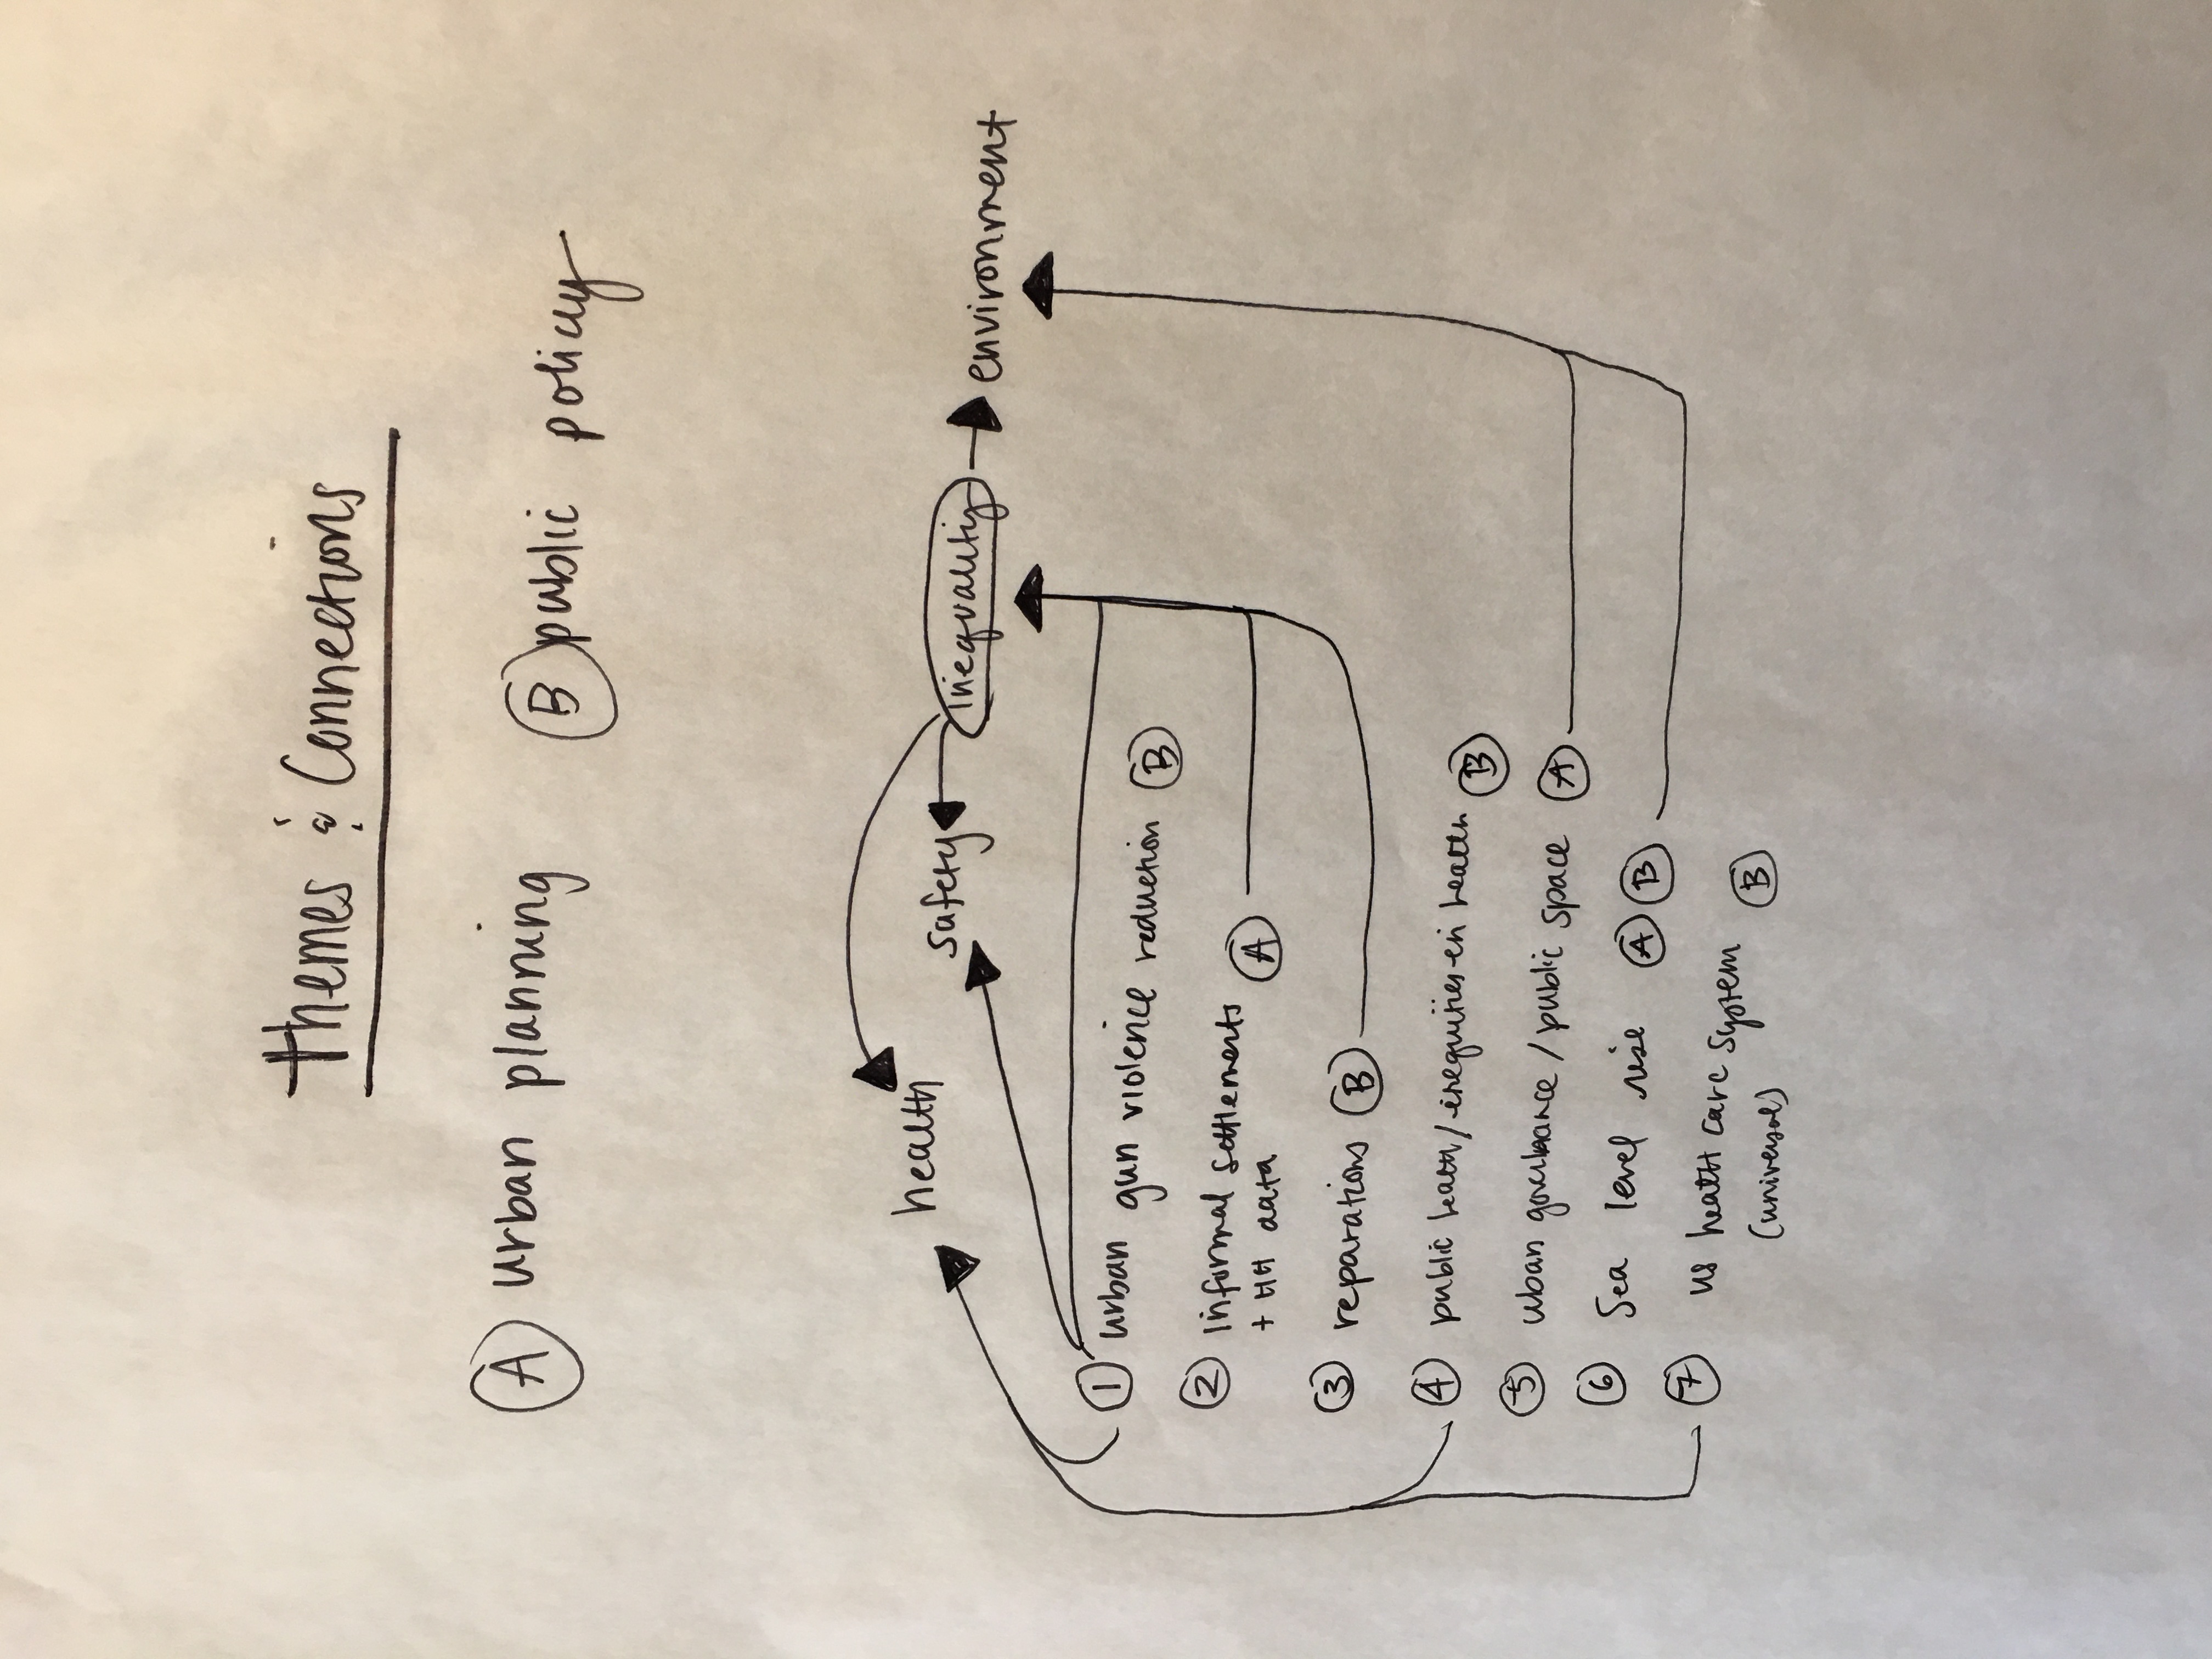 Themes & Connections
A urban planning
B public policy
health
safety
inequality
environment
1 urban gun violence reduction B
2 informal settlements A
+ HH data
3 reparations B
4 public health/inequities in health B
5 uban governance / public space A
6 Sea level rise A B
7 us health care system B
(universal)